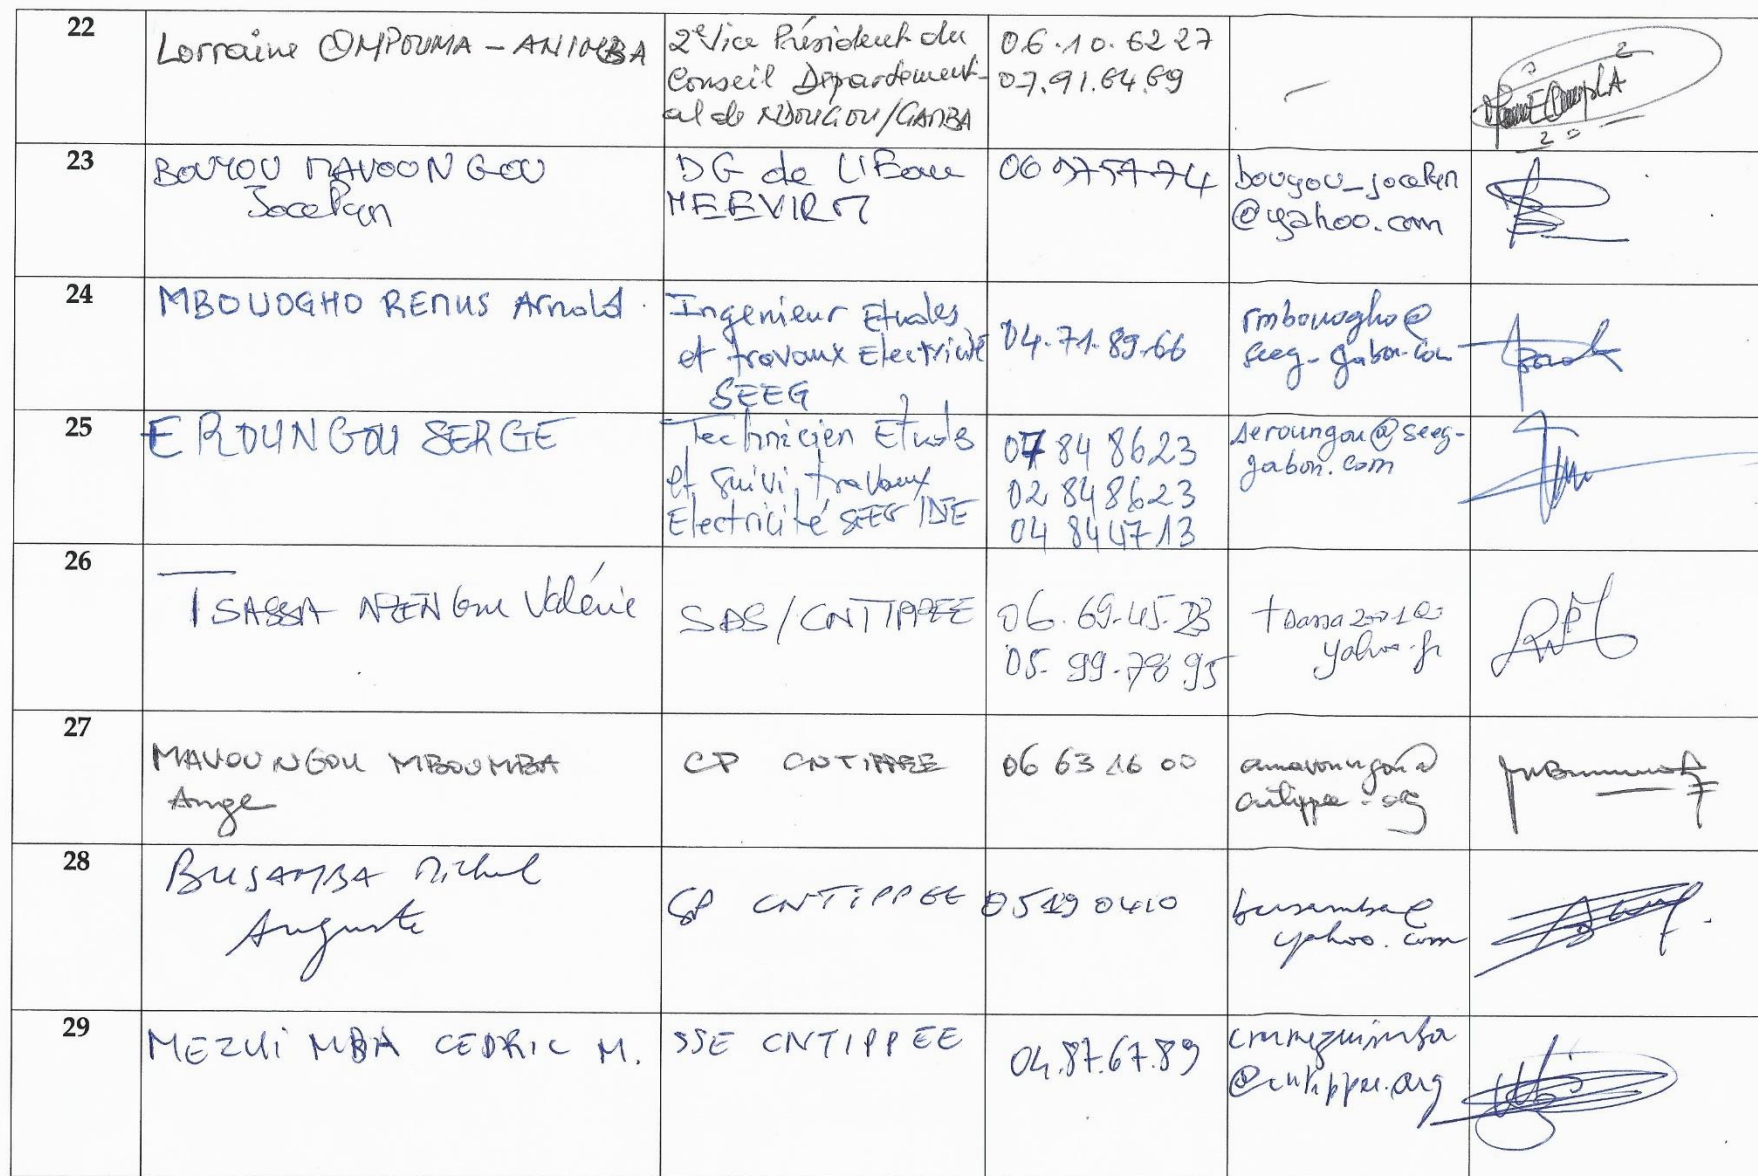 22
Lorraine OMPOUMA - ANIMBA
2e Vice Président du
Conseil Département-
al de NDOUGOU/GAMBA
06.10.62 27
07.91.64.69
23
BOUYOU MAVOONGOU
Jocelyn
DG de L'Eau
MEEVIRM
06 07 57 74
bouyou_jocelyn
@yahoo.com
24
MBOUOGHO REMUS Arnold.
Ingenieur Etudes
et travaux Electricité
SEEG
04.71.89.66
rmbouogho@
seeg-gabon.com
25
EROUNGOU SERGE
Technicien Etudes
et suivi travaux
Electricité SEEG
07 84 86 23
02 84 86 23
04 84 47 13
seroungou@seeg-
gabon.com
26
TSASSA NZENGUE Valérie
/CNTIPPEE
06.69.45.23
05.99.78.95
yahoo.fr
27
MAVOUNGOU MBOUMBA
Ange
CP CNTIPPEE
06 63 16 00
amavoungou@
cntippee.org
28
BUSAMBA Michel
Auguste
CNTIPPEE
05190410
busamba@
yahoo.com
29
MEZUI MBA CEDRIC M.
SSE CNTIPPEE
04.87.67.89
cmmezuimba
@cntippee.org